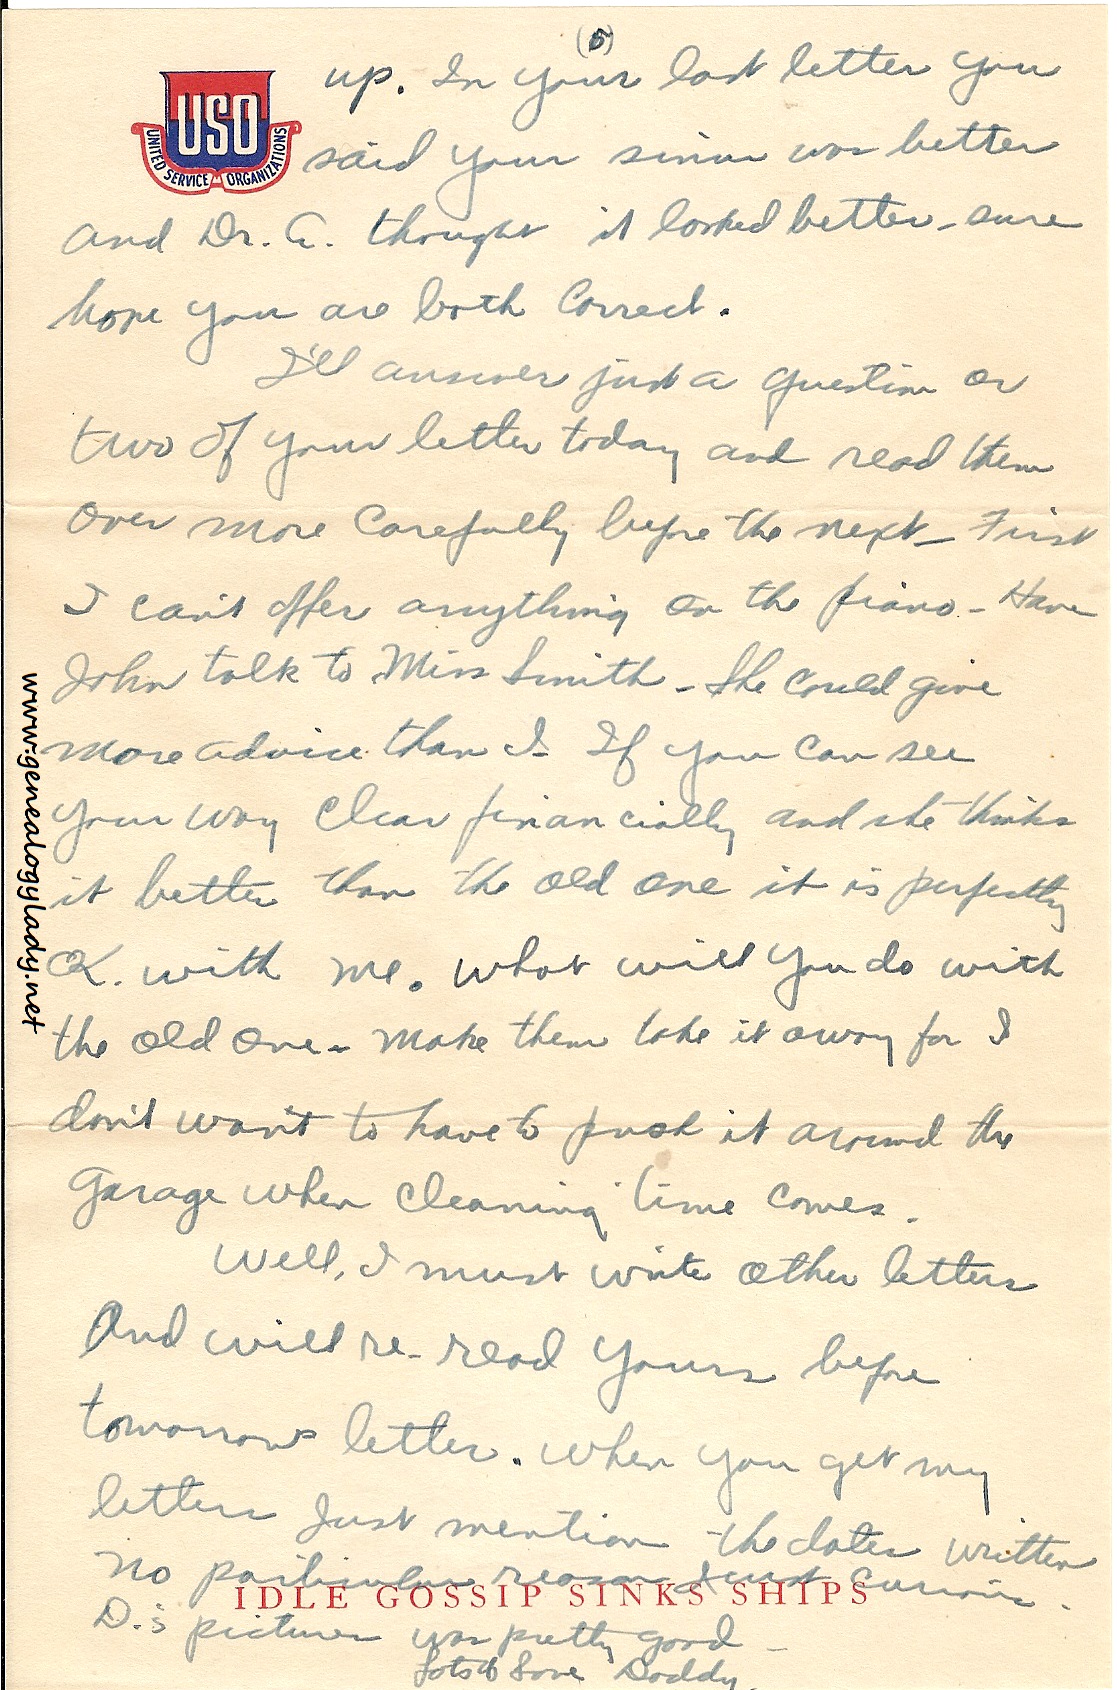 (5)
USO
UNITED SERVICE ORGANIZATIONS
up. In your last letter you
said your sinus was better
and Dr. A. thought it looked better - sure
hope you are both correct.
I'll answer just a question or
two of your letter today and read them
over more carefully before the next - First
I can't offer anything on the piano - Have
John talk to Miss Smith - She could give
more advice than I - If you can see
your way clear financially and she thinks
it better than the old one it is perfectly
OK. with me. What will you do with
the old one - Make them take it away for I
don't want to have to push it around the
garage when cleaning time comes.
Well, I must write other letters
and will re-read yours before
tomorrows letter. When you get my
letters just mention the dates written
No particular reason just curious.
IDLE GOSSIP SINKS SHIPS
D.'s picture was pretty good -
Lots of Love Daddy.
www.genealogylady.net